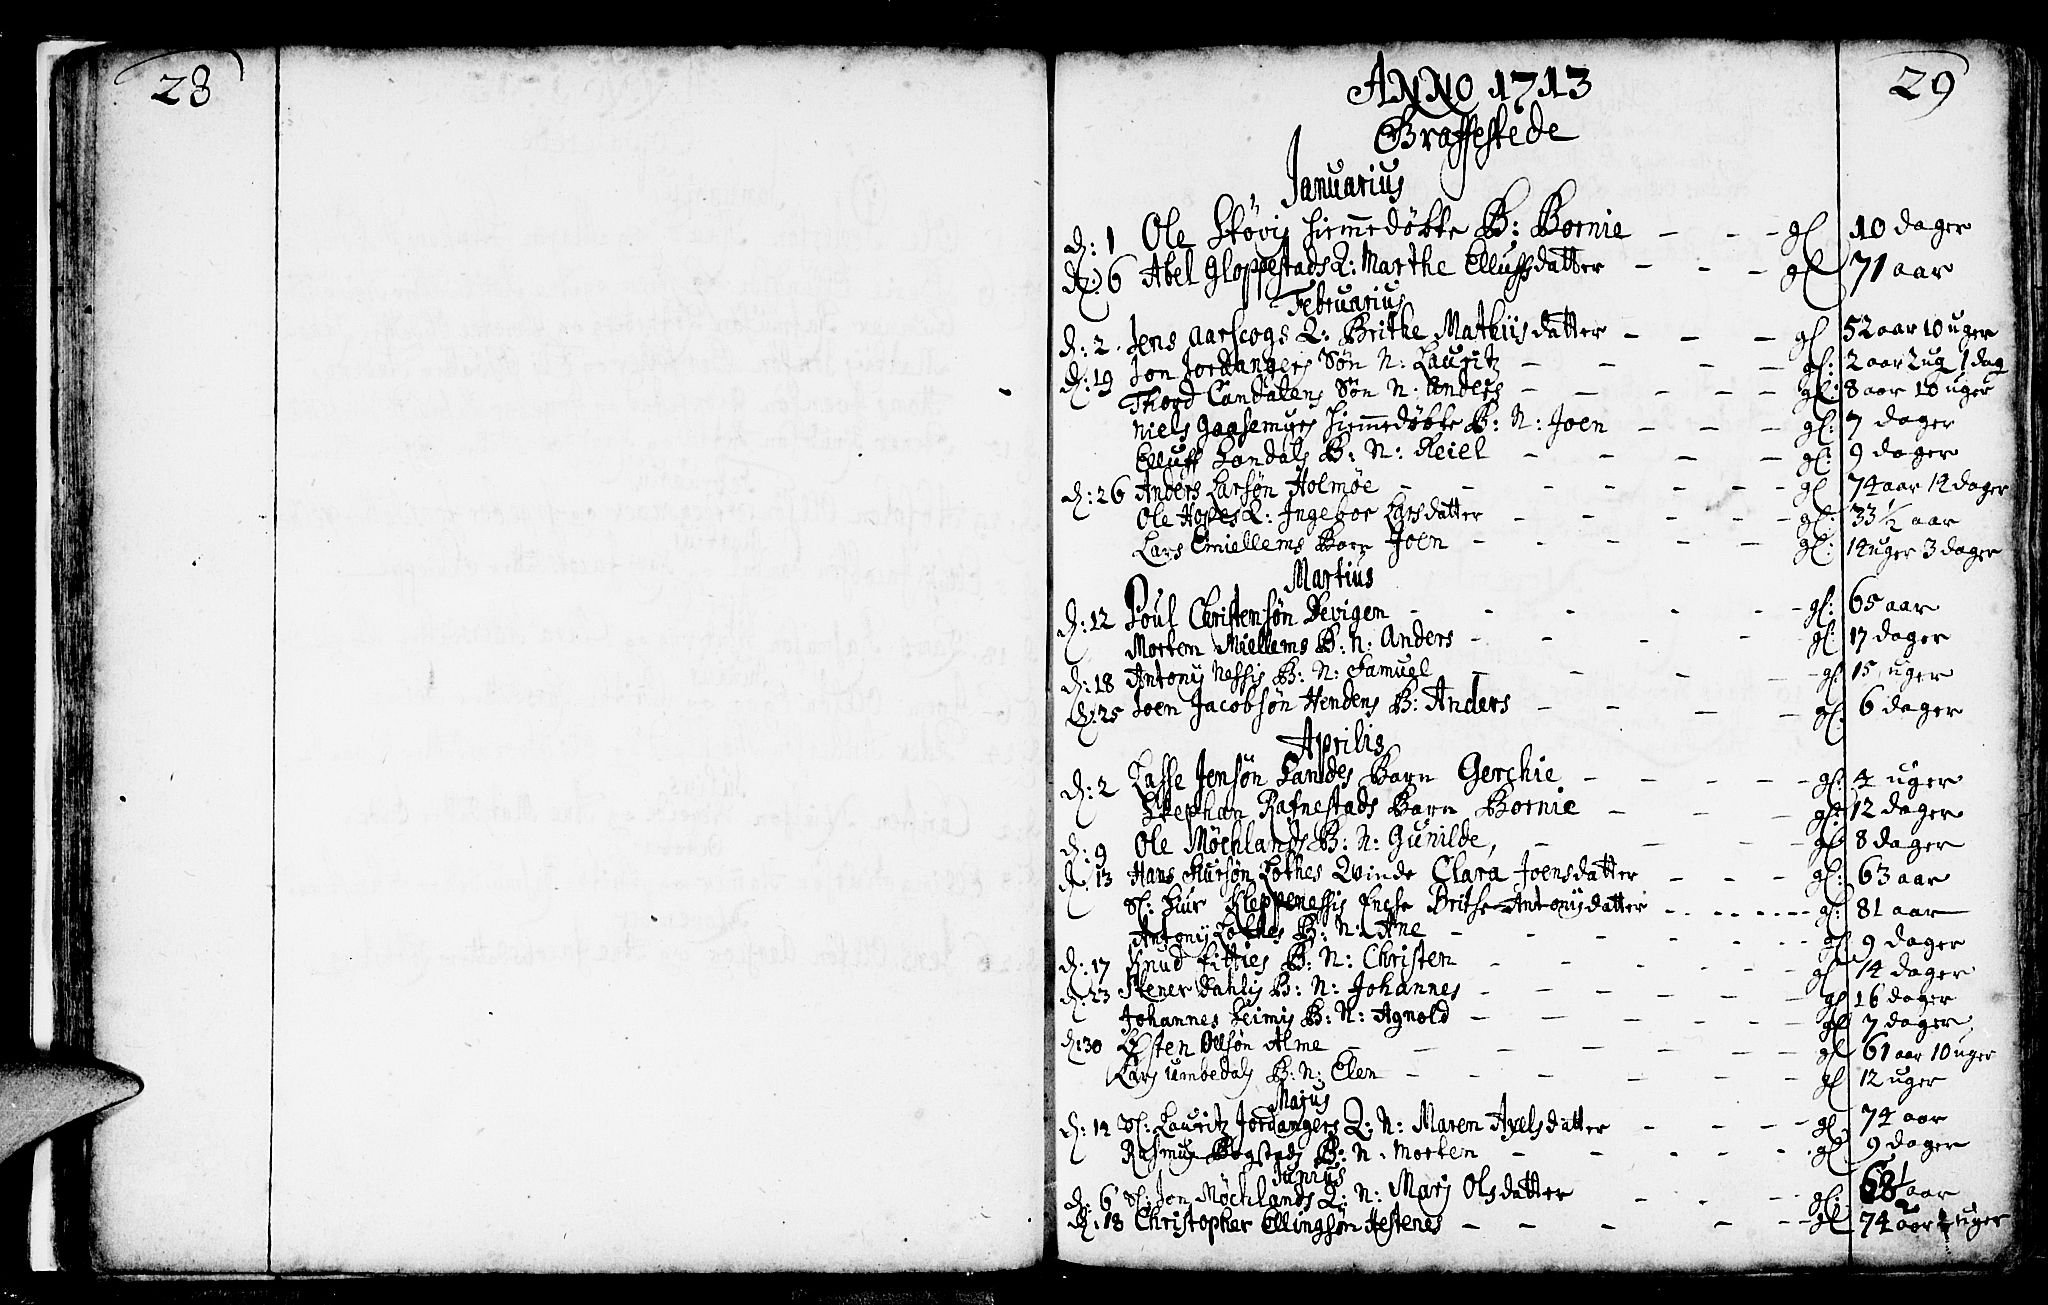 28
29
ANNO 1713
Graffestede
Januarius
d: 1 Ole Støvis hiemmedøbte B: Bornie - - - gl 10 dager
d: 6 Abel Gloppestads Q: Marthe Elluffsdatter - - - gl 71 aar
Februarius
d: 2 Jens Aarscogs Q: Brithe Mathiisdatter - - - gl 52 aar 10 uger
d: 19 Jon Jordangers Søn N: Lauritz - - - gl: 2 aar 2 ug 1 dag
Thord Candalens Søn N: Anders - - - gl: 8 aar 10 uger
Niels Gaasemyrs hiemmedøbte B: N: Joen - - - gl: 7 dager
Elluff Landals B: N: Reiel - - - gl: 9 dager
d: 26 Anders Larsøn Holmøe - - - gl 74 aar 14 dager
Ole Hopes Q: Ingebor Larsdatter - - - gl: 33 1/2 aar
Lars Emiellems Barn Joen - - - gl: 14 uger 3 dager
Martius
d: 12 Poul Christensøn Devigen - - - gl: 65 aar
Morten Miellems B: N: Anders - - - gl: 17 dager
d: 18 Antonij Nessis B: N: Samuel - - - gl: 15 uger
d: 25 Joen Jacobsøn Hendens B: Anders - - - gl: 6 dager
Aprilis
d: 2 Lasse Jensøn Sandes Barn Gerchie - - - gl: 4 uger
Stephan Rafnestads Barn Bornie - - - gl: 12 dager
d: 9 Ole Møchlands B: N: Gunilde, - - - gl 8 dager
d: 13 Hans Siursøn Lothes Qvinde Clara Joensdatter - - - gl: 63 aar
Sl: Siur Kleppenessis Enche Brithe Antonijsdatter - - - gl: 81 aar
Antonij Lothes B: N: Ane - - - gl 9 dager
d: 17 Knud Fitties B: N: Christen - - - gl 14 dager
d: 23 Stener Dahlis B: N: Johannes - - - gl 16 dager
Johannes Leimis B: N: Agnold - - - gl 7 dager
d: 30 Østen Olsøn Alme - - - gl 61 aar 10 uger
Lars Umbedals B: N: Elen - - - gl 12 uger
Majus
d: 14 Sl: Lauritz Jordangers Q: N: Maren Axelsdatter - - - gl 74 aar
Rasmus Bogstads B: N. Morten - - - gl 9 dager
Junius
d: 6 Sl: Jon Møchlands Q: N: Marj Olsdatter - - - gl: 68 1/2 aar
d: 18 Christopher Ellingsøn Hestenes - - - gl 74 aar uger